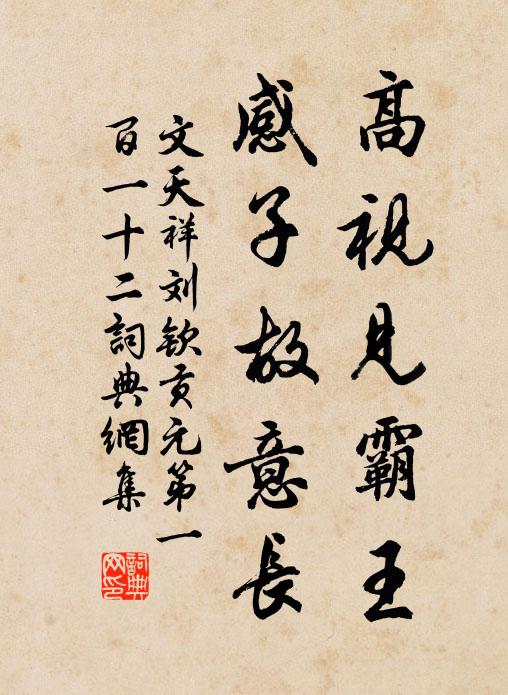 高視見霸王
感子故意長
文天祥刘欽貢元第一
百一十二詞典網集
詞典
网印